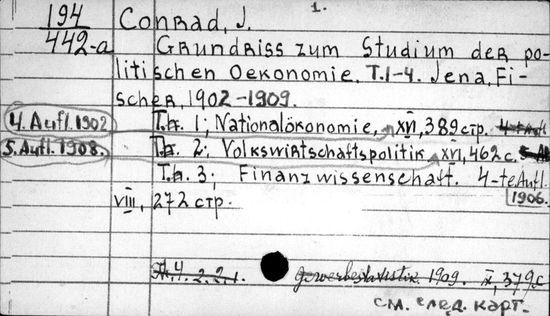 1.
194
442-a
Conrad, J.
Grundriss zum Studium der po-
litischen Oekonomie. T.1-4. Jena, Fi-
scher, 1902-1909.
4. Aufl. 1902
T.h. 1; Nationalökonomie, XVI, 389 стр. 4-te Aufl.
5. Aufl. 1908.
T.h. 2; Volkswirtschaftspolitik XVI, 462 с.
T.h. 3; Finanzwissenschaft. 4-te Aufl.
1906.
VIII, 272 стр.
4. 2.2.1. Gewerbestatistik 1909. X, 379 с
см. след. карт.